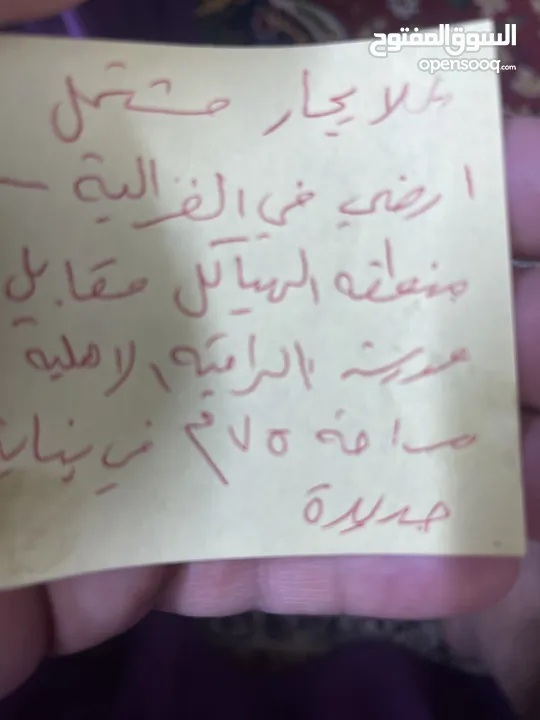 السوق المفتوح
opensooq.com
للايجار مشتمل
ارضي في الغزالية -
منطقه الهياكل مقابل
مدرسة الراقيه الاهلية
مساحة ٧٥م في بناية
جديدة